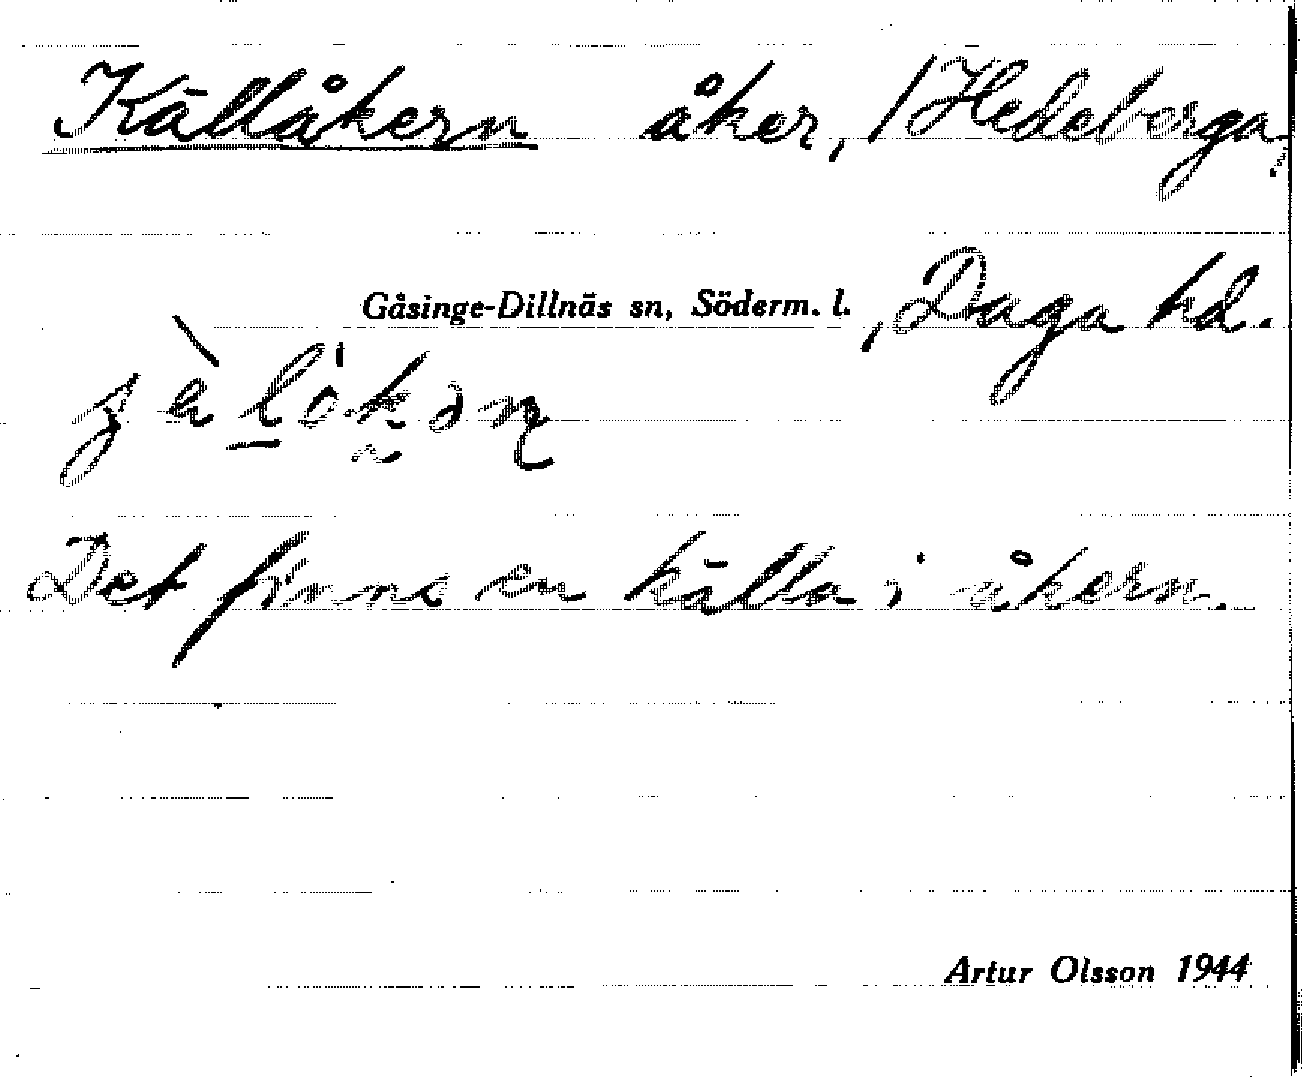 Källåkern åker, / Hedeberga,
Gåsinge-Dillnäs sn, Söderm. l. , Daga hd.
Det finns en källa i åkern.
Artur Olsson 1944